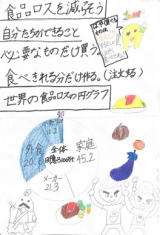 食品ロスを減らそう
自分たちができること
必要なものだけ買う
食べきれる分だけ作る。(注文する)
世界の食品ロスの円グラフ
外食
全体
家庭
45.2
メーカー
21.3